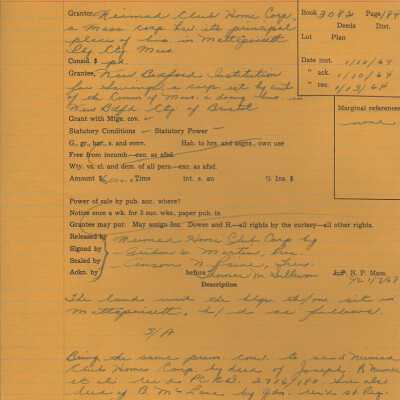 Grantor, Nimrod Club Home Corp,
a Mass corp has its principal
place of bus in Mattapoisett
Ply Cty Mass
Consid. $ pd.
Grantee, New Bedford Institution
for Savings, a corp est by aut
of the Comm of Mass, & doing bus in
New Bedfd Cty of Bristol
Grant with Mtge. cov.
Statutory Conditions Statutory Power
G., gr., bar., s. and conv. Hab. to hrs. and assgns., own use
Free from incumb.—exc. as afsd.
Wty. vs. cl. and dem. of all pers—exc. as afsd.
Amount $ Time int. s. an % Ins $
Power of sale by pub. auc. where?
Notice once a wk. for 3 suc. wks., paper pub. in
Grantee may pur. May assign Ins. Dower and H.—all rights by the curtesy—all other rights.
Released by Nimrod Home Club Corp by
Signed by Arthur C. Martin, Pres.
Sealed by Treas.
Ackn. by before M Sullivan J.P. N. P. Mass.
Description
The land with the bldgs th/on sit in
Mattapoisett, b/d as follows
S/A
Being the same prem conv. to said Nimrod
Club Home Corp by deed of Joseph R Nunes
et al rec'd PCRD. 2716/180 See als
deed of B. by rec'd st Reg.
Book 3082 Page 184
Deeds Dist.
Lot Plan
Date inst. 1/10/64
" ack. 1/10/64
" rec. 1/13/64
Marginal references
none